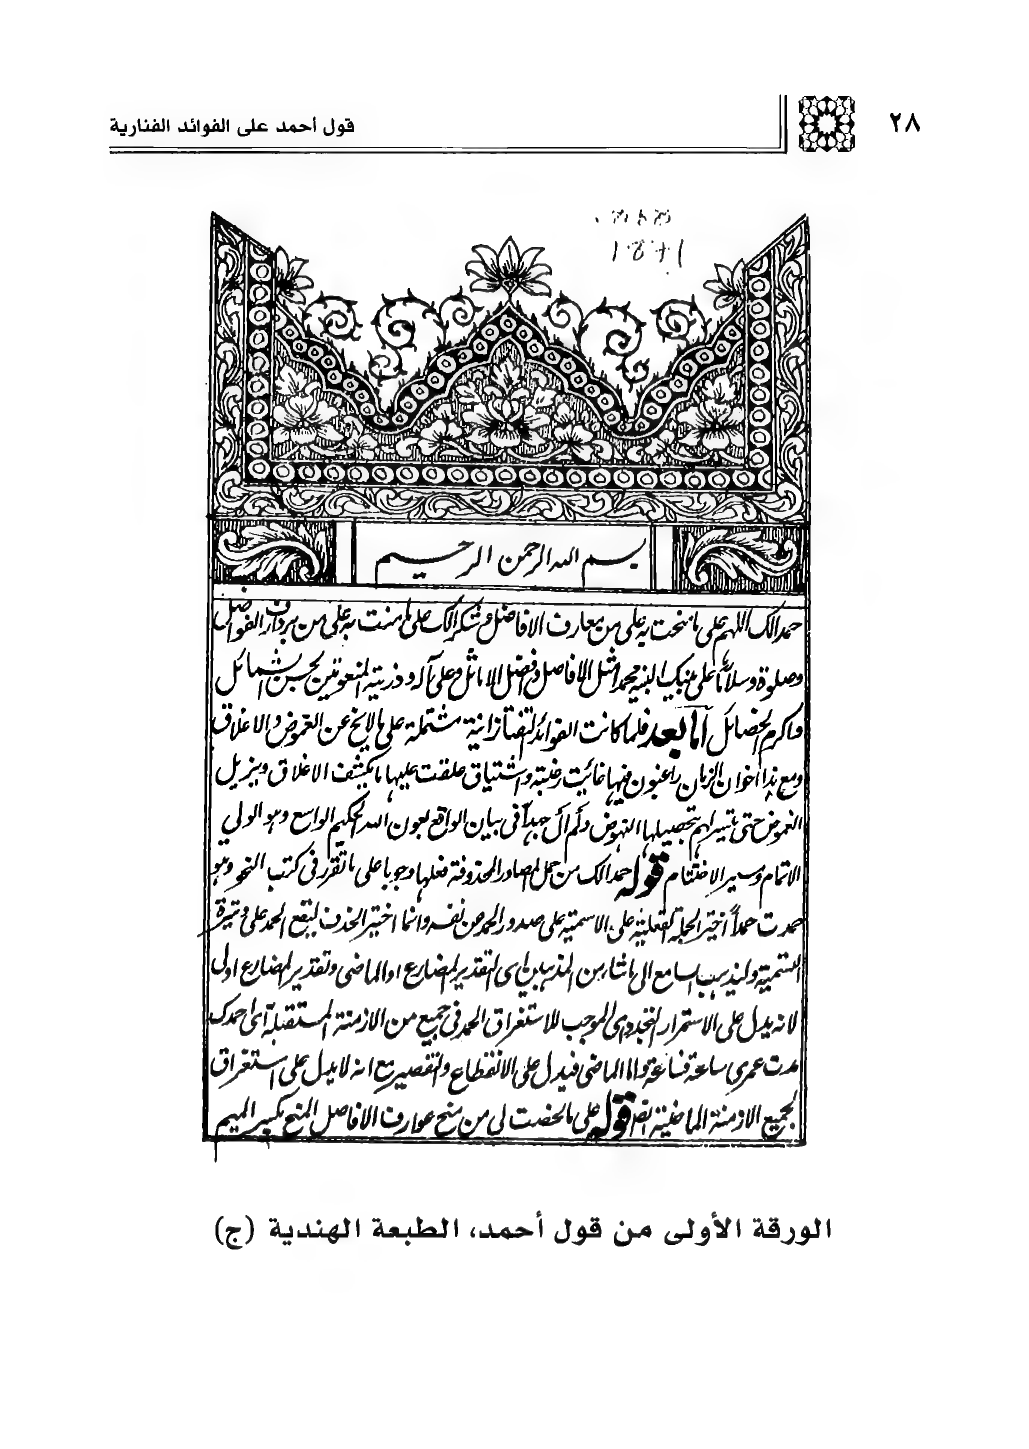 ٢٨
قول أحمد على الفوائد الفنارية
بسم الله الرحمن الرحيم
حمدا لك اللهم على ما منحت به على من معارف الافاضل وشكرا لك على ما مننت به على من الفواضل
وصلوة وسلاما على نبيك محمد امثل الافاضل وافضل الاماثل وعلى آله وذريته المنعوتين لحسن الشمائل
واكرم الخصائل اما بعد فلما كانت الفوائد مشتملة على ما لا يخ عن الغموض والاغلاق
ومع هذا اخوان الزمان راغبون فيها غاية رغبة واشتياق علقت عليها ما يكشف الاغلاق ويزيل
الغموض حتى يتيسر لهم تحصيلها النهوض ولم آل جهدا فى بيان الواقع بعون الله الحكيم الواسع وهو الولي
الاتمام وميسر الاختتام قوله حمدا لك من جمل المصادر المحذوفة فعلها وجوبا على ما تقرر فى كتب النحو وهو
حمدت حمدا اختير الجملة الفعلية على الاسمية على صدور الحمد من نفسه وانما اختير الحذف ليقع الحمد على وتيرة
التسمية وليذهب السامع الى ما شاء من المذهبين اى التقدير المضارع او الماضى وتقدير المضارع اولى
لانه يدل على الاستمرار التجددى الموجب للاستغراق الحمد فى جميع من الازمنة المستقبلة اى احمدك
مدت عمرى ساعة فساعة واما الماضى فيدل على الانقطاع والتقصير مع انه لا يدل على استغراق
لجميع الازمنة الماضية قوله على ما لخصت لى من منح عوارف الافاضل المنح بكسر الميم
الورقة الأولى من قول أحمد، الطبعة الهندية (ج)